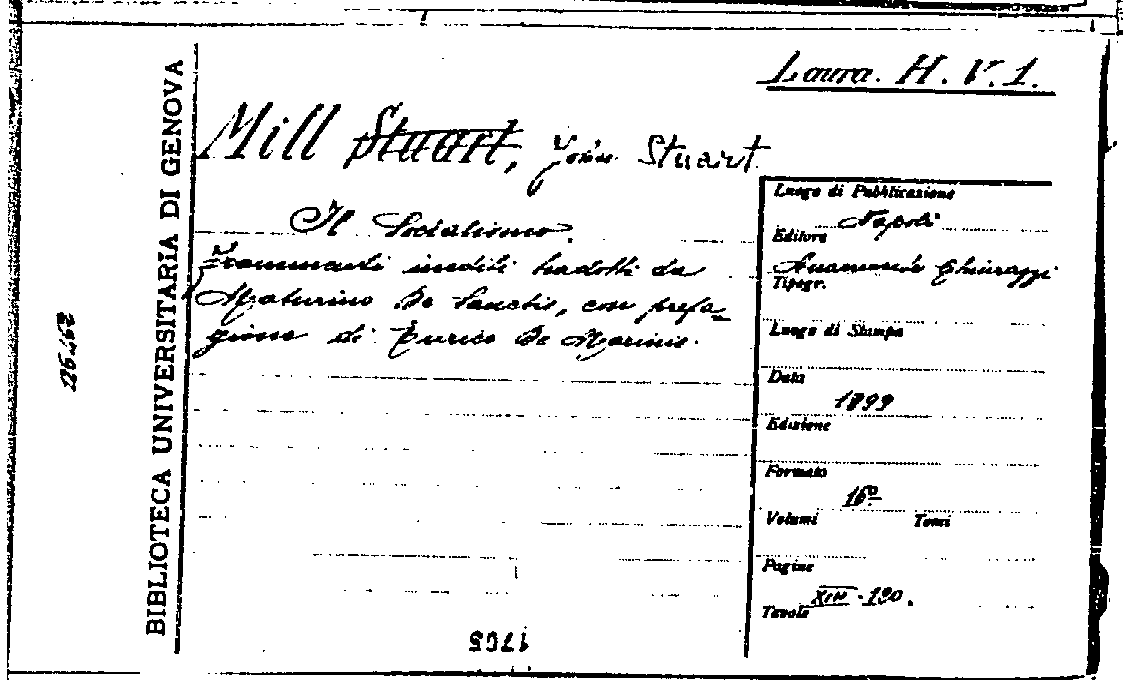 Laura. H. V. 1.
Mill Stuart, John Stuart
Il Socialismo.
Frammenti inediti tradotti da
Maturino De Sanctis, con prefa-
zione di Enrico De Marinis.
Luogo di Pubblicazione
Napoli
Editore
Chiurazzi
Tipogr.
Luogo di Stampa
Data
1899
Edizione
Formato
16º
Volumi Tomi
Pagine
XIII-130.
Tavole
BIBLIOTECA UNIVERSITARIA DI GENOVA
1705